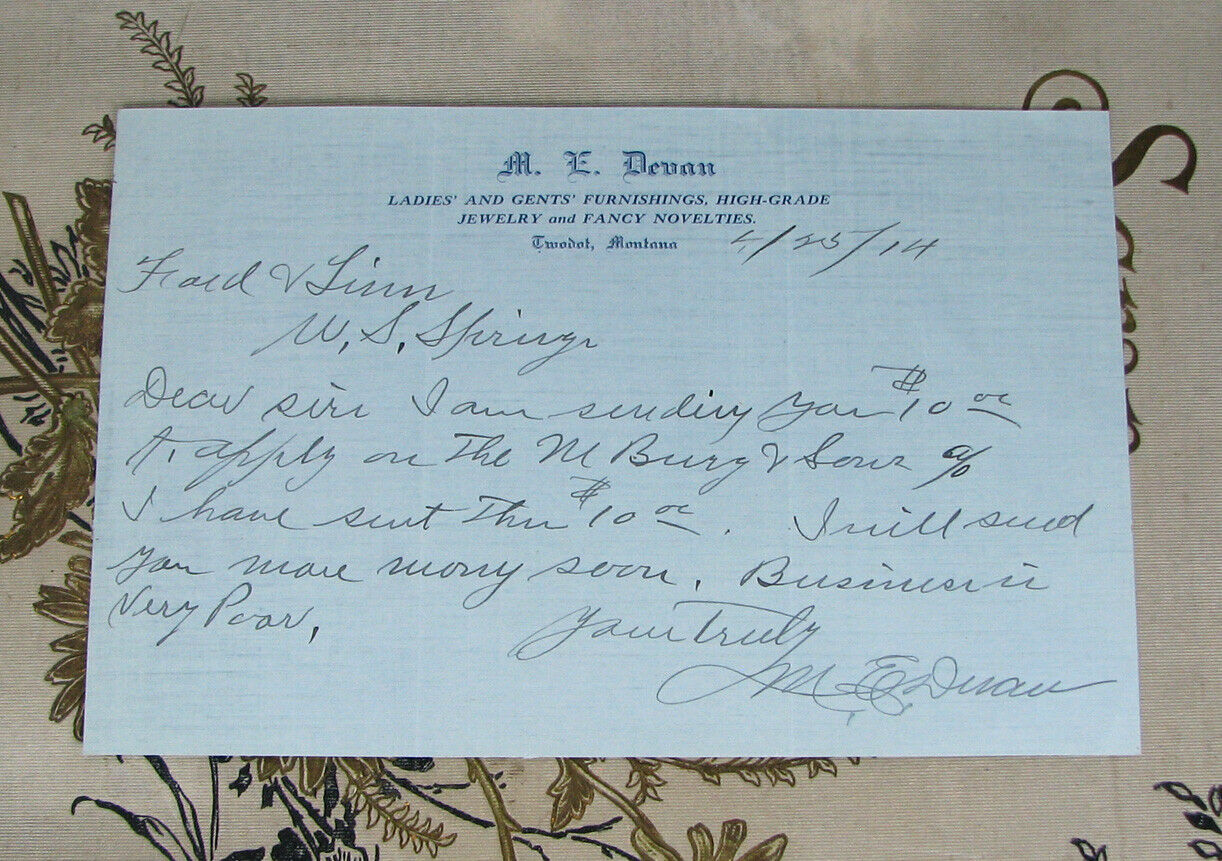 M. E. Devan
LADIES' AND GENTS' FURNISHINGS, HIGH-GRADE
JEWELRY and FANCY NOVELTIES.
Twodot, Montana 4/25/14
Ford & Linn
W. S. Springs
Dear sirs I am sending you $10 oo
to apply on The M Burg & Sons a/c
I have sent Thm $10 oo. I will send
you more mony soon. Business is
Very Poor,
Yours Truly
M. E. Devan
S